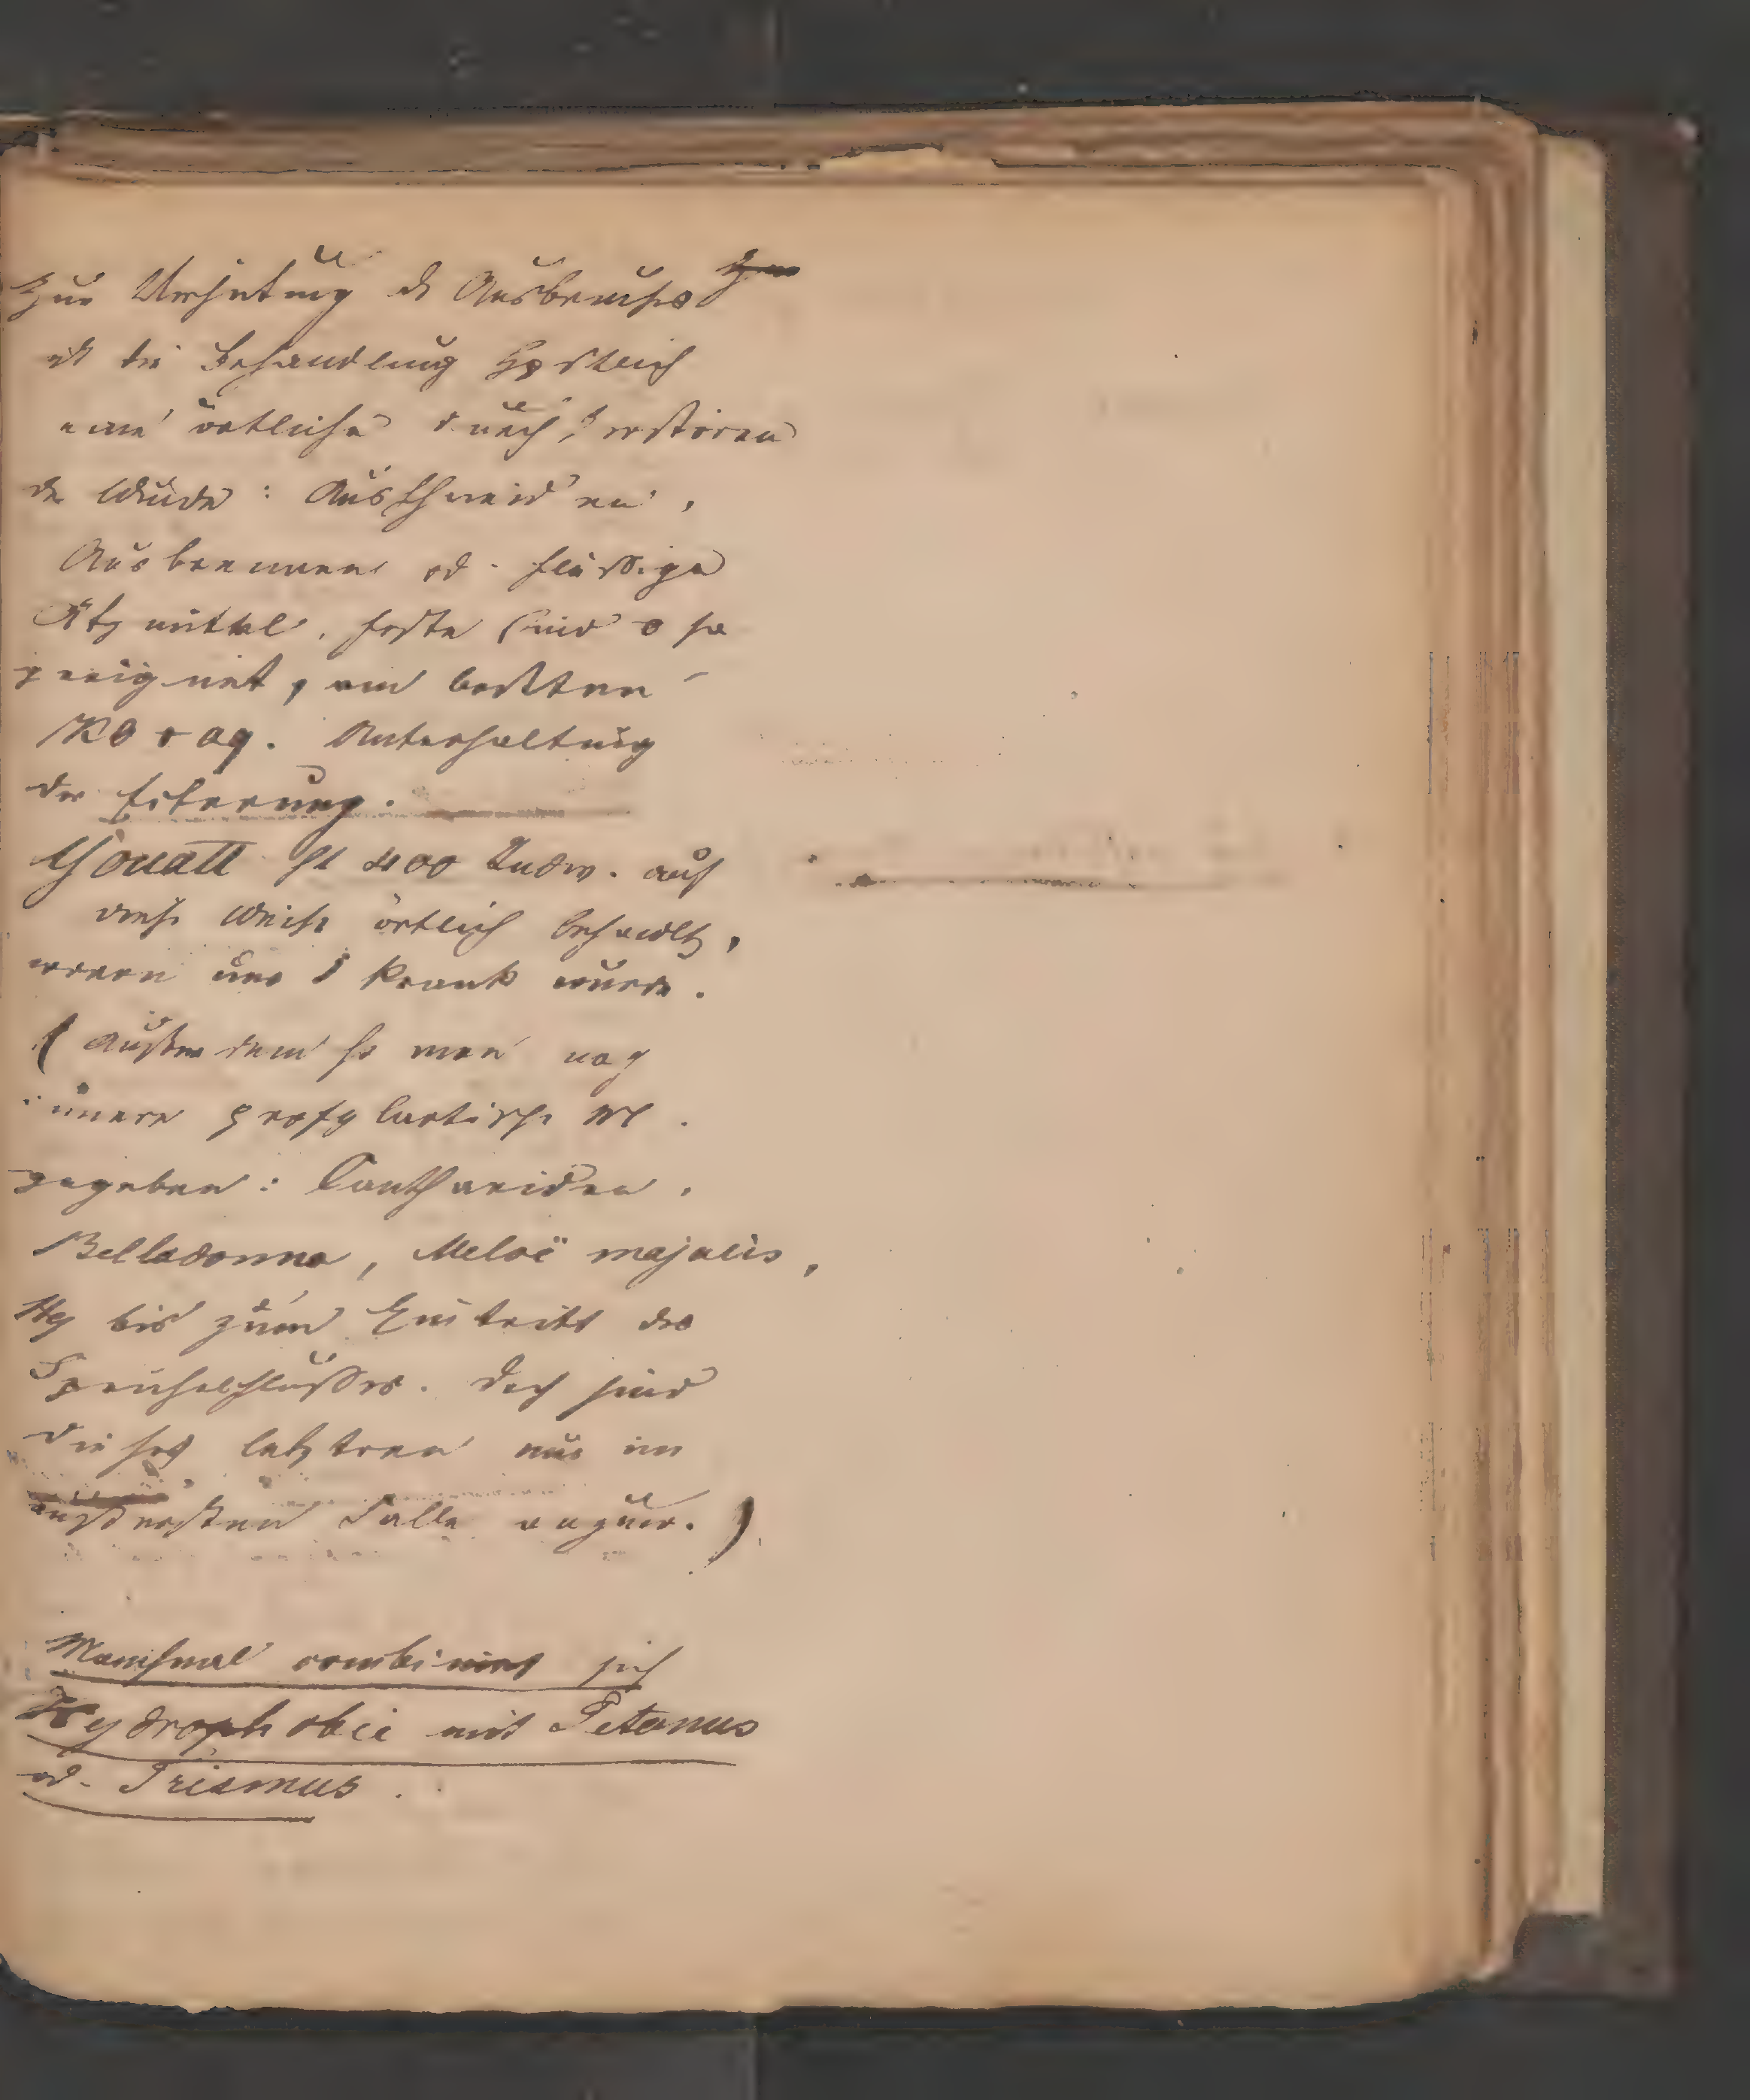 Zur Verhütung ds Ausbruchs
ist die Behandlung hpstlich
eine örtliche durch Zerstören
der Wunde: Ausschneiden,
Ausbrennen od. flüssige
Ätzmittel, feste sind 0 so
geeignet, am besten
KO + aq. Unterhaltung
der Eiterung.
Youatt ht 400 Indiv. auf
diese Weise örtlich behandlt,
woran nur 1 krank wurde.
(Außerdem ht man noch
innere profylactische M.
gegeben: Canthariden,
Belladonna, Meloë majalis,
Hg bis zum Eintritt des
Speichelflusses. Doch sind
diese letzteren nur im
äußersten Falle anzuw.)
Manchmal combinirt sich
Hydrophobie mit Tetanus
od. Trismus.